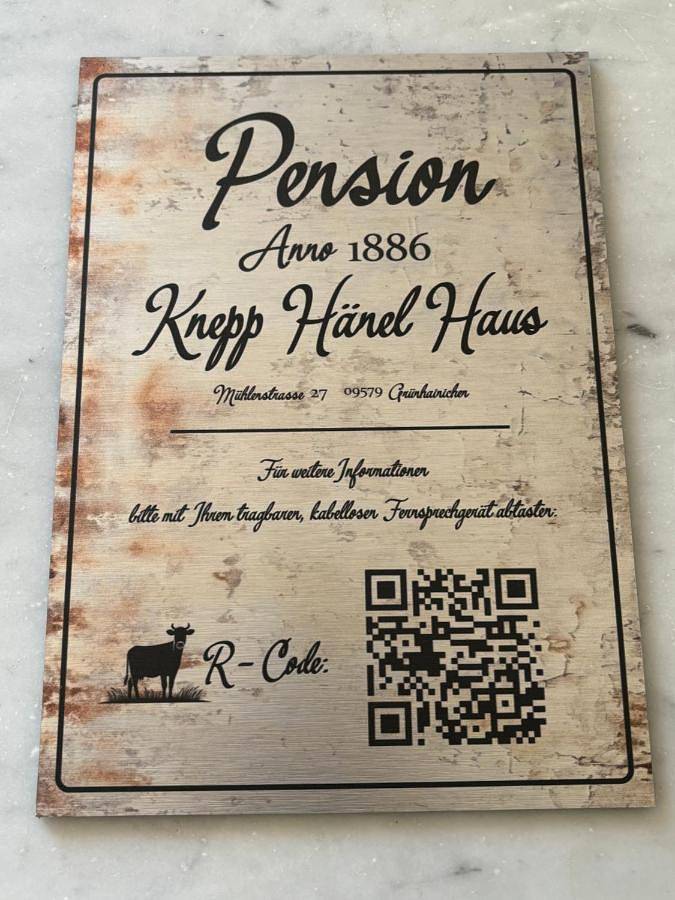 Pension
Anno 1886
Knepp Hänel Haus
Mühlenstrasse 27 09579 Grünhainichen
Für weitere Informationen
bitte mit Ihrem tragbaren, kabellosen Fernsprechgerät abtasten:
R - Code: